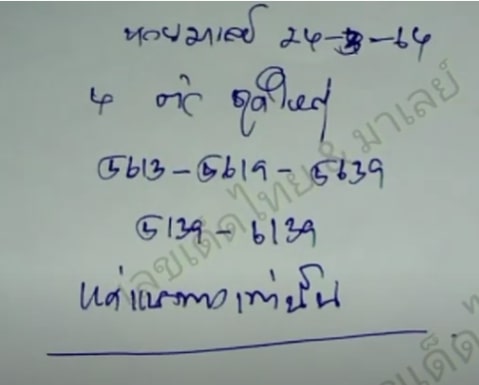 หวยมาเลย์ 24-3-64
4 ตัว ชุดใหญ่
๕613-๕619-๕639
๕139-6139
แค่แนวทางเท่านั้น
เลขเด็ดไทย & มาเลย์